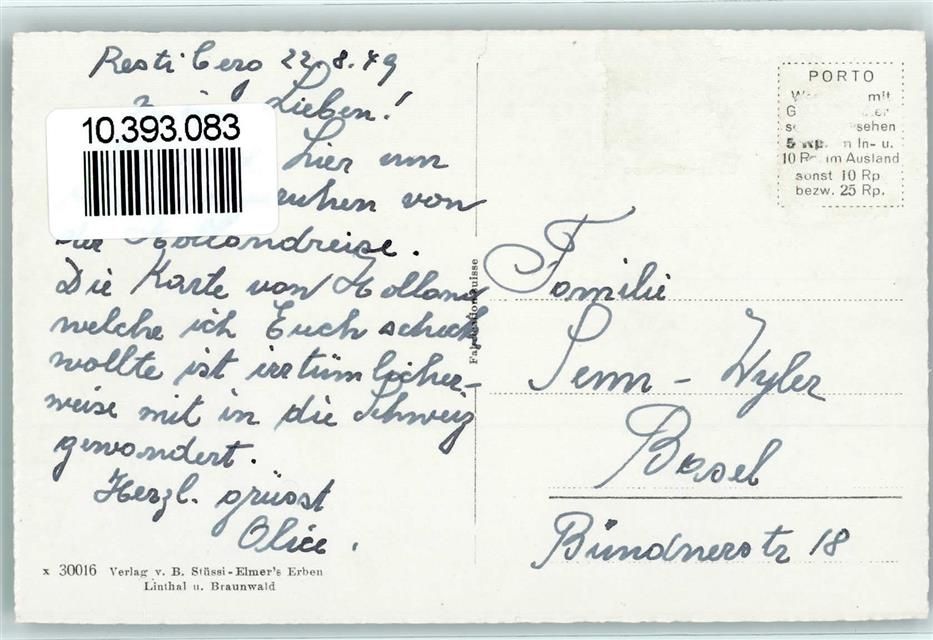 Resti Berg 22.8.49
Lieben!
10.393.083
hier um
ruhen von
der Hollandreise.
Die Karte von Holland
welche ich Euch schick
wollte ist irrtümlicher-
weise mit in die Schweiz
gewandert.
Herzl. grüsst
Alice.
x 30016 Verlag v. B. Stüssi-Elmer's Erben
Linthal u. Braunwald
Suisse
PORTO
mit
sehen
5 Rp. In- u.
10 Rp. im Ausland
sonst 10 Rp
bezw. 25 Rp.
Familie
Senn - Wyler
Basel
Bündnerstr 18